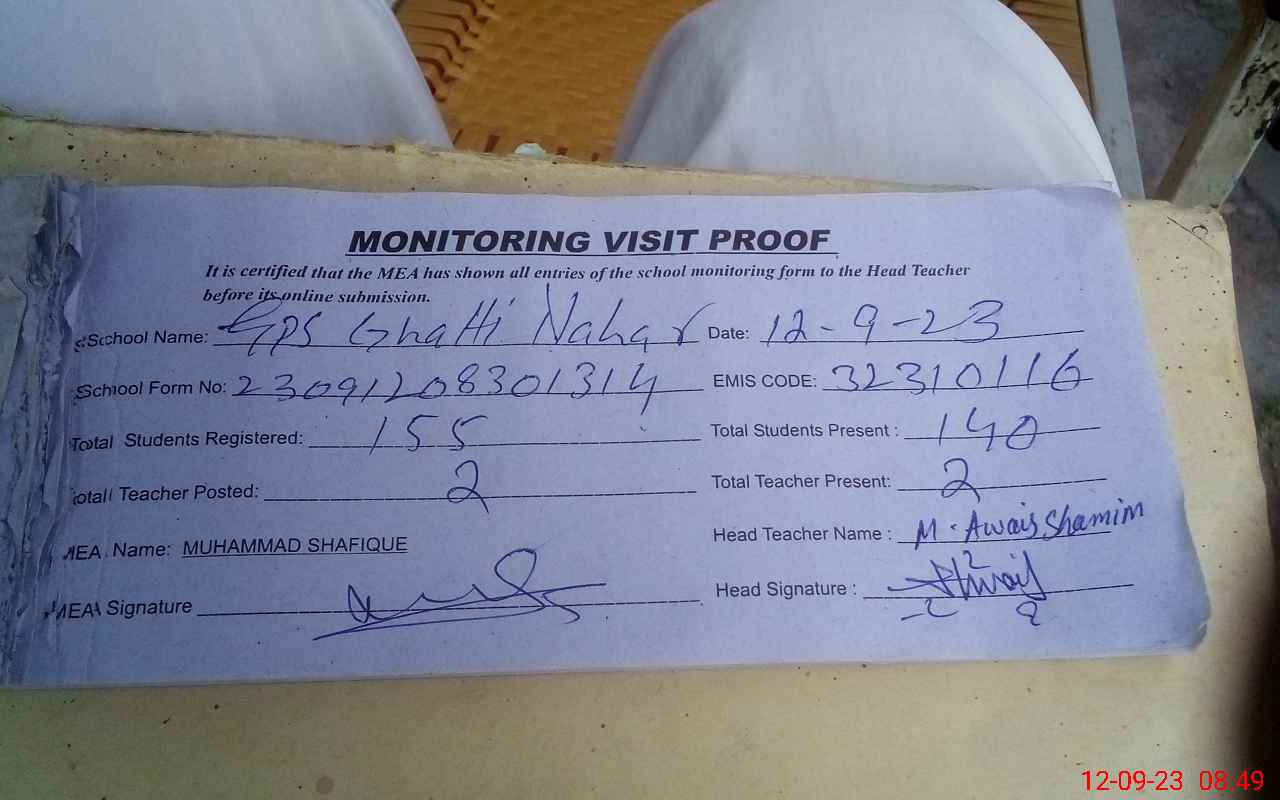 MONITORING VISIT PROOF
It is certified that the MEA has shown all entries of the school monitoring form to the Head Teacher
before its online submission.
School Name: GPS Ghatti Nahar Date: 12-9-23
School Form No: 23091208301314 EMIS CODE: 32310116
Total Students Registered: 155 Total Students Present : 140
Total Teacher Posted: 2 Total Teacher Present: 2
MEA Name: MUHAMMAD SHAFIQUE Head Teacher Name : M. Awais Shamim
MEA Signature Head Signature :
12-09-23 08:49